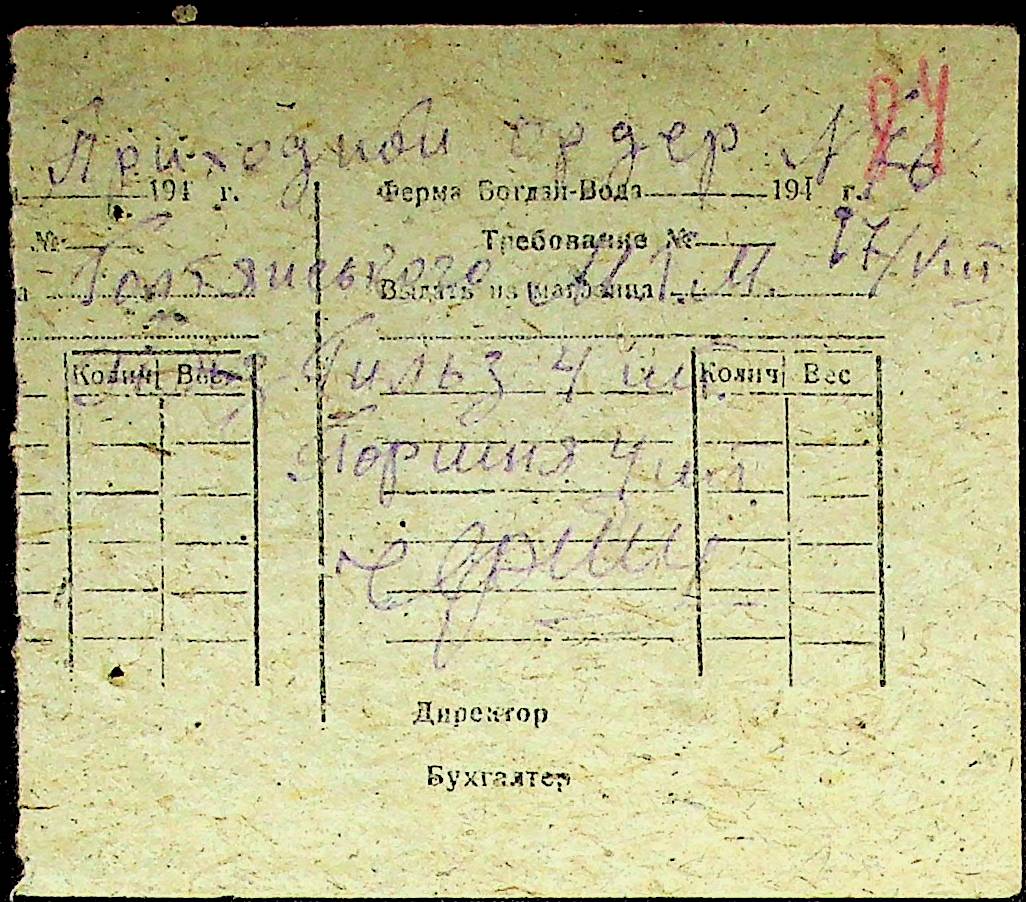 24
Приходной ордер N
194 г. Ферма Богдай-Вода 194 г.
№ Требование №
17/VIII
Выдать из магазина
Колич Вес Гильз 4 шт. Колич Вес
Поршня 4 шт
Директор
Бухгалтер